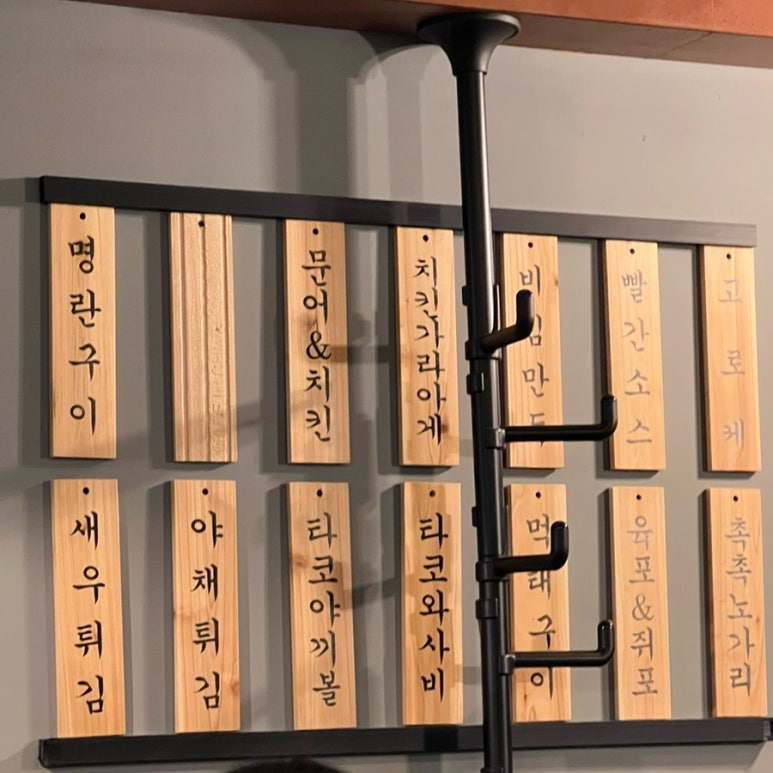 명란구이
문어&치킨
치킨가라아게
비빔만두
빨간소스
고로케
새우튀김
야채튀김
타코야끼볼
타코와사비
먹태구이
육포&쥐포
촉촉노가리